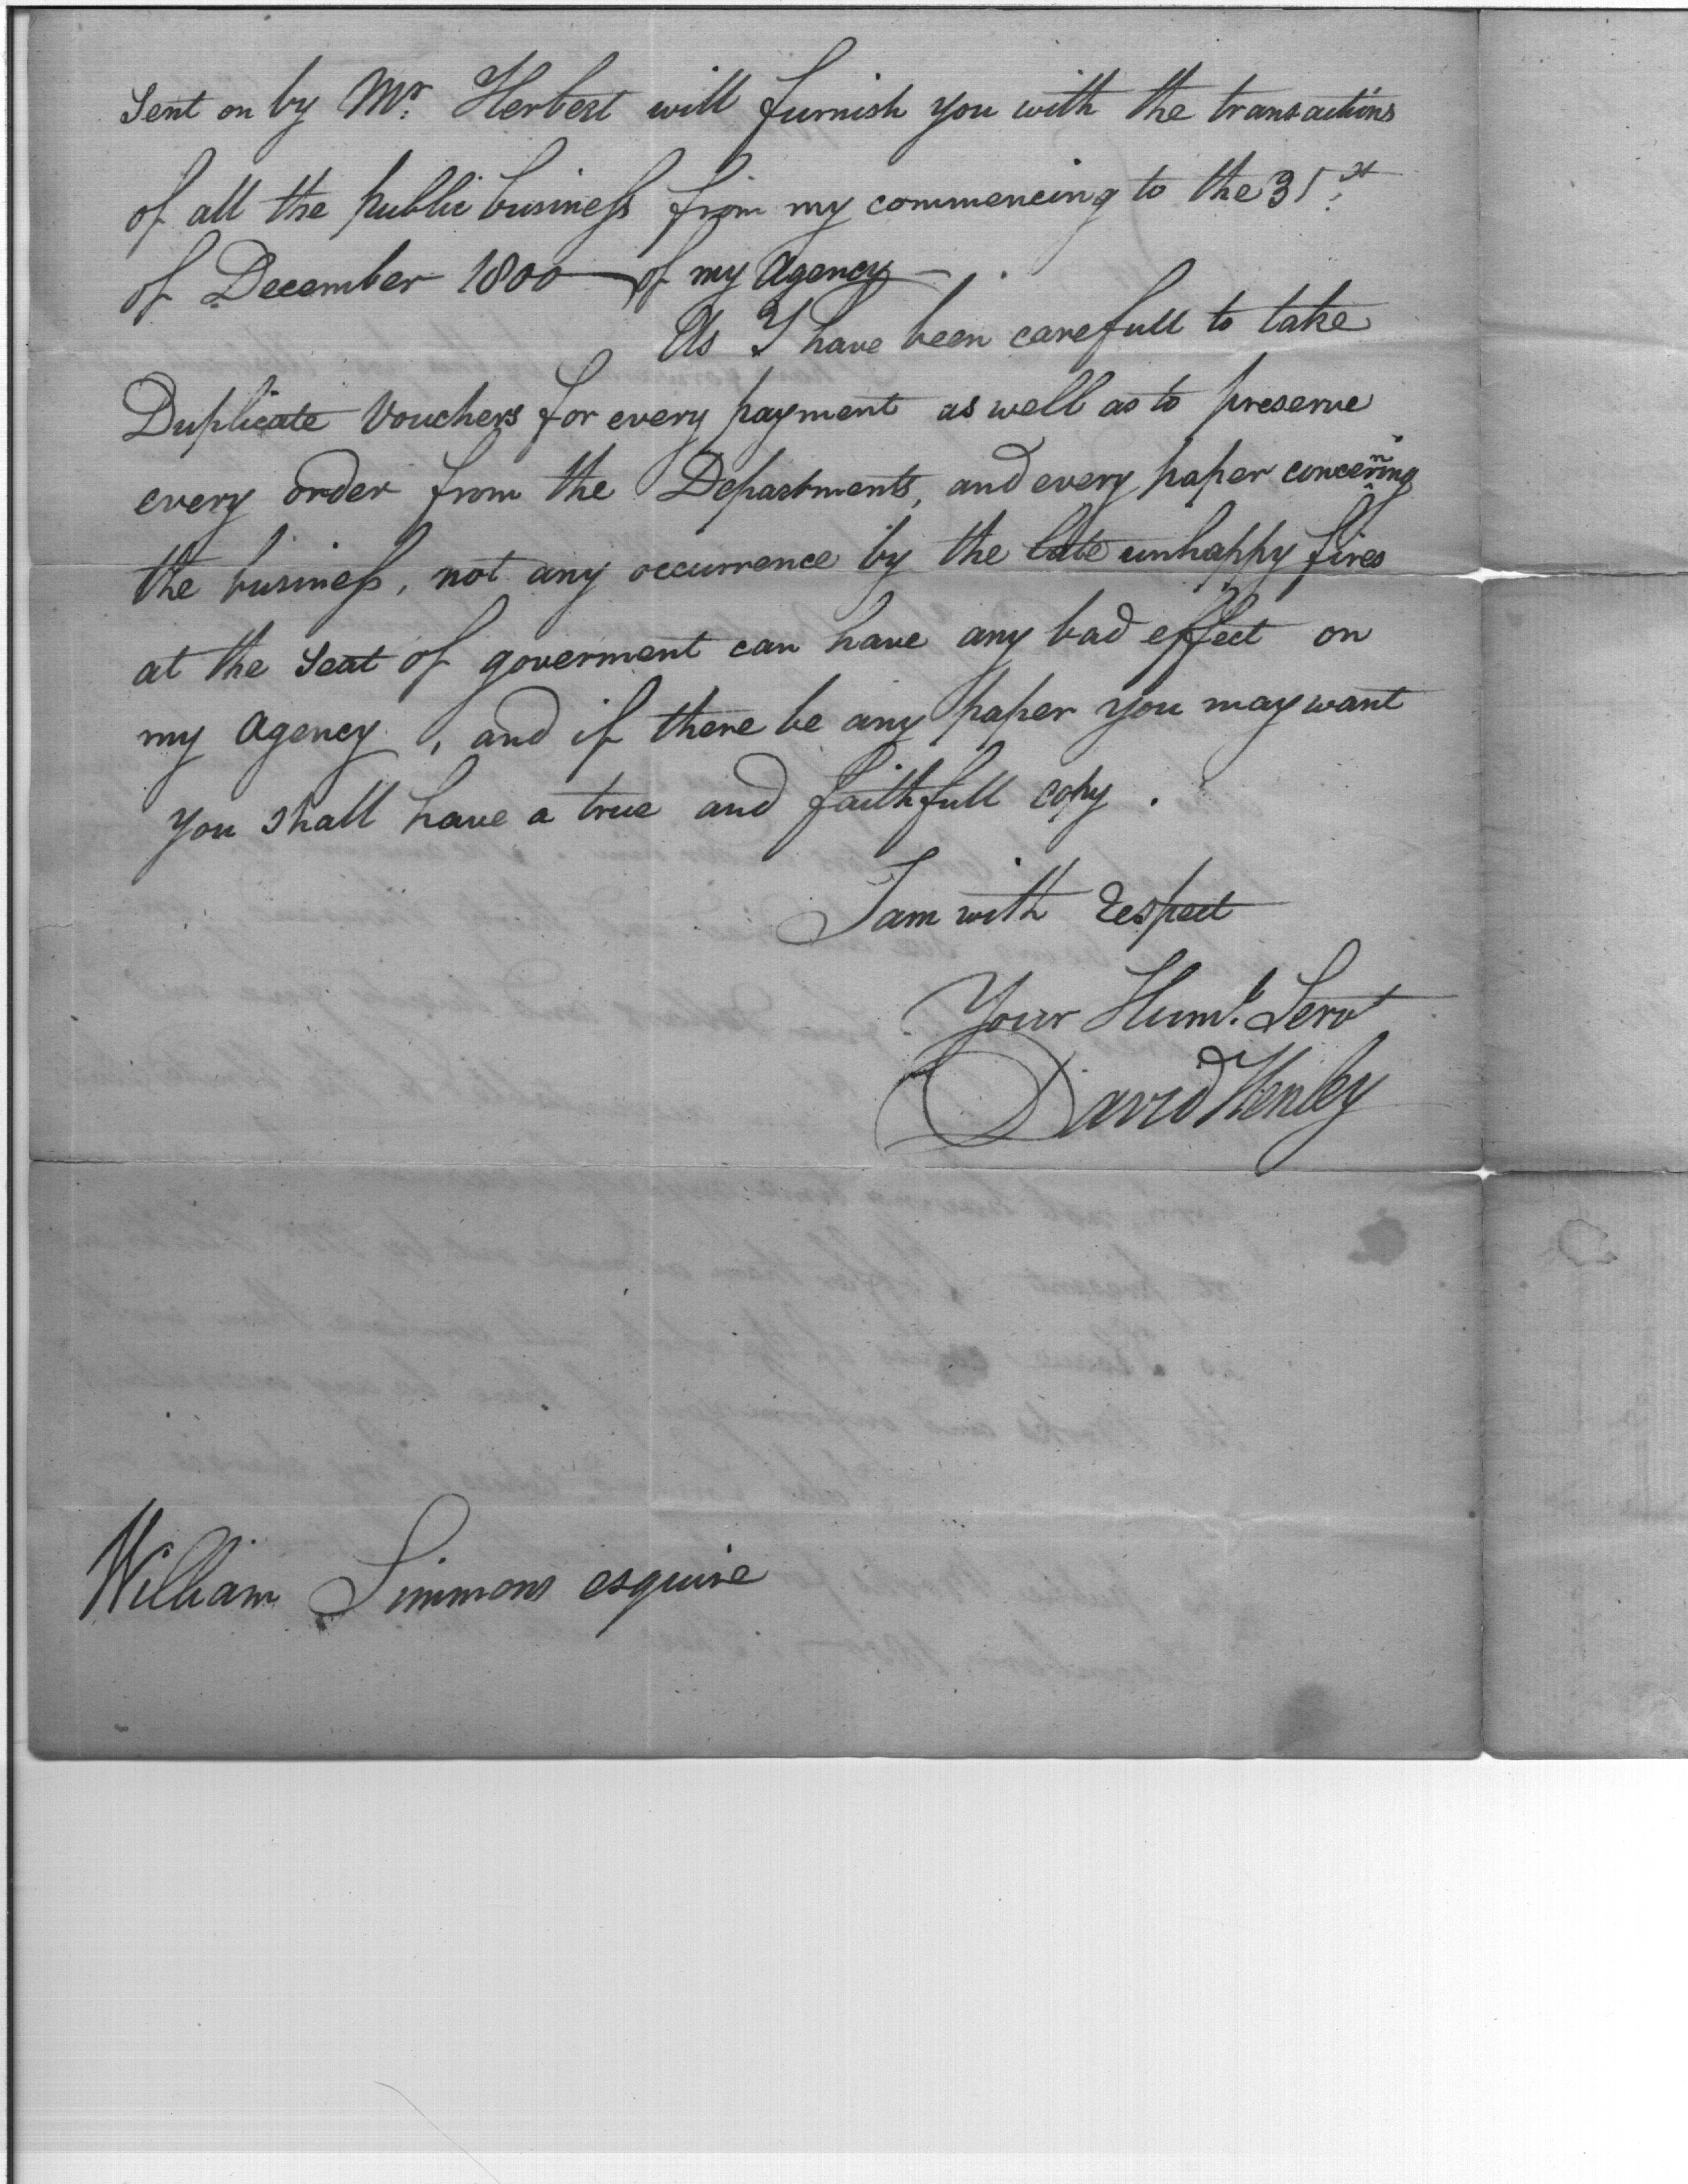 Sent on by Mr. Herbert will furnish you with the transactions
of all the public business from my commencing to the 31st
of December 1800 — of my Agency — .
As I have been carefull to take
Duplicate Vouchers for every payment as well as to preserve
every order from the Departments, and every paper concerning
the business, not any occurrence by the late unhappy fires
at the Seat of goverment can have any bad effect on
my Agency , and if there be any paper you may want
you shall have a true and faithfull copy .
I am with respect
Your Huml. Servt
David Henley
William Simmons esquire